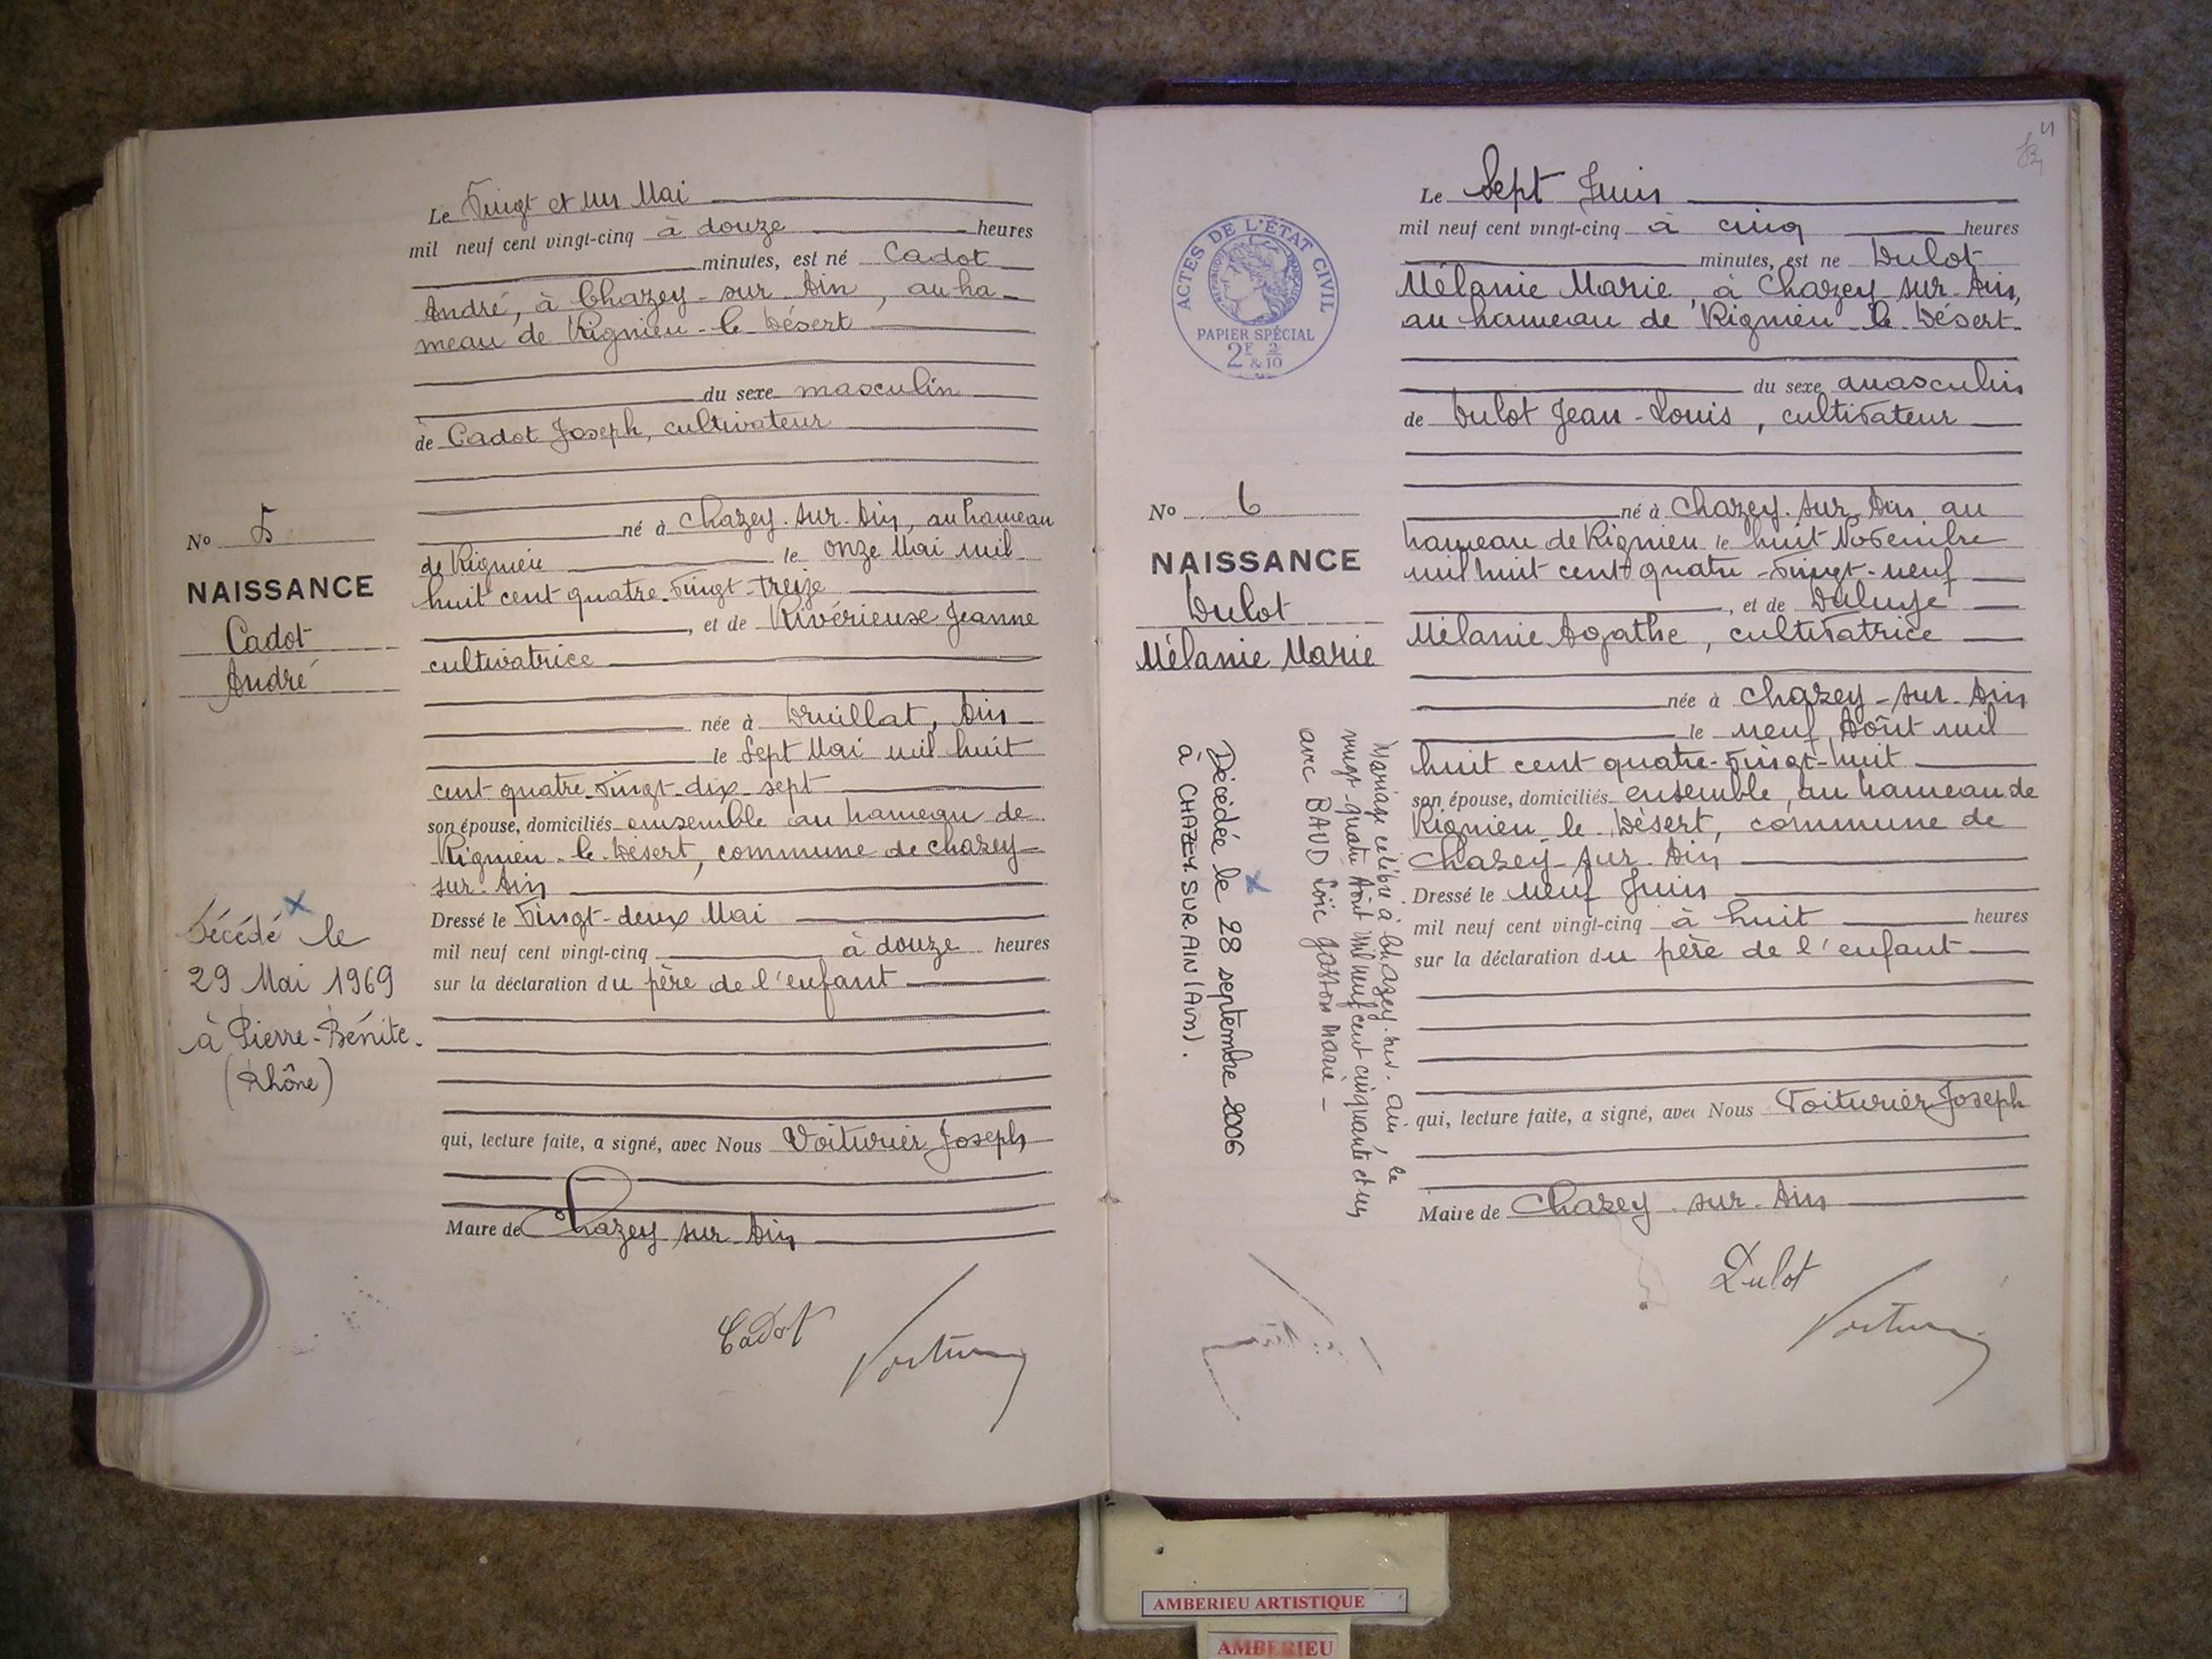 Le Vingt et un Mai
mil neuf cent vingt-cinq à douze heures
minutes, est né Cadot
André, à Chazey-sur-Ain, au ha-
meau de Rignieu-le-Désert
du sexe masculin
de Cadot Joseph, cultivateur
né à Chazey-sur-Ain, au hameau
de Rignieu le onze Mai mil
huit cent quatre-vingt-treize
, et de Rivérieuse Jeanne
cultivatrice
née à Druillat, Ain
le Sept Mai mil huit
cent quatre-vingt-dix-sept
son épouse, domiciliés ensemble au hameau de
Rignieu-le-Désert, commune de Chazey-
sur-Ain
Dressé le Vingt-deux Mai
mil neuf cent vingt-cinq à douze heures
sur la déclaration du père de l'enfant
qui, lecture faite, a signé, avec Nous Voiturier Joseph
Maire de Chazey sur Ain
Cadot
No 5
NAISSANCE
Cadot
André
Décédé le
29 Mai 1969
à Pierre-Bénite.
(Rhône)
Le Sept Juin
mil neuf cent vingt-cinq à cinq heures
minutes, est né Dulot
Mélanie Marie, à Chazey-sur-Ain,
au hameau de Rignieu-le-Désert
du sexe
de Dulot Jean-Louis, cultivateur
né à Chazey-sur-Ain au
hameau de Rignieu le huit Novembre
mil huit cent quatre-vingt-neuf
, et de
Mélanie Agathe, cultivatrice
née à Chazey-sur-Ain
le neuf Août mil
huit cent quatre-vingt-huit
son épouse, domiciliés ensemble, au hameau de
Rignieu le Désert, commune de
Chazey-sur-Ain
Dressé le neuf Juin
mil neuf cent vingt-cinq à huit heures
sur la déclaration du père de l'enfant
qui, lecture faite, a signé, avec Nous Voiturier Joseph
Maire de Chazey-sur-Ain
Dulot
ACTES DE L'ÉTAT CIVIL
PAPIER SPÉCIAL
2F 2/10
No 6
NAISSANCE
Dulot
Mélanie Marie
Mariage célébré à Chazey-sur-Ain, le
vingt-quatre Août mil neuf cent cinquante et un
avec BAUD Loïc Gaston Marie -
Décédée le 28 septembre 2006
à CHAZEY SUR AIN (Ain).
AMBERIEU ARTISTIQUE
AMBERIEU